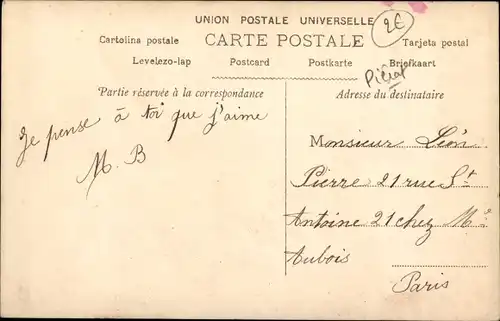 UNION POSTALE UNIVERSELLE
2€
Cartolina postale CARTE POSTALE Tarjeta postal
Levelezo-lap Postcard Postkarte Briefkaart
Partie réservée à la correspondance
Adresse du destinataire
Je pense à toi que j'aime
M. B
Monsieur Léon
Pierre 21 rue St
Antoine 21 chez Me
Aubois
Paris